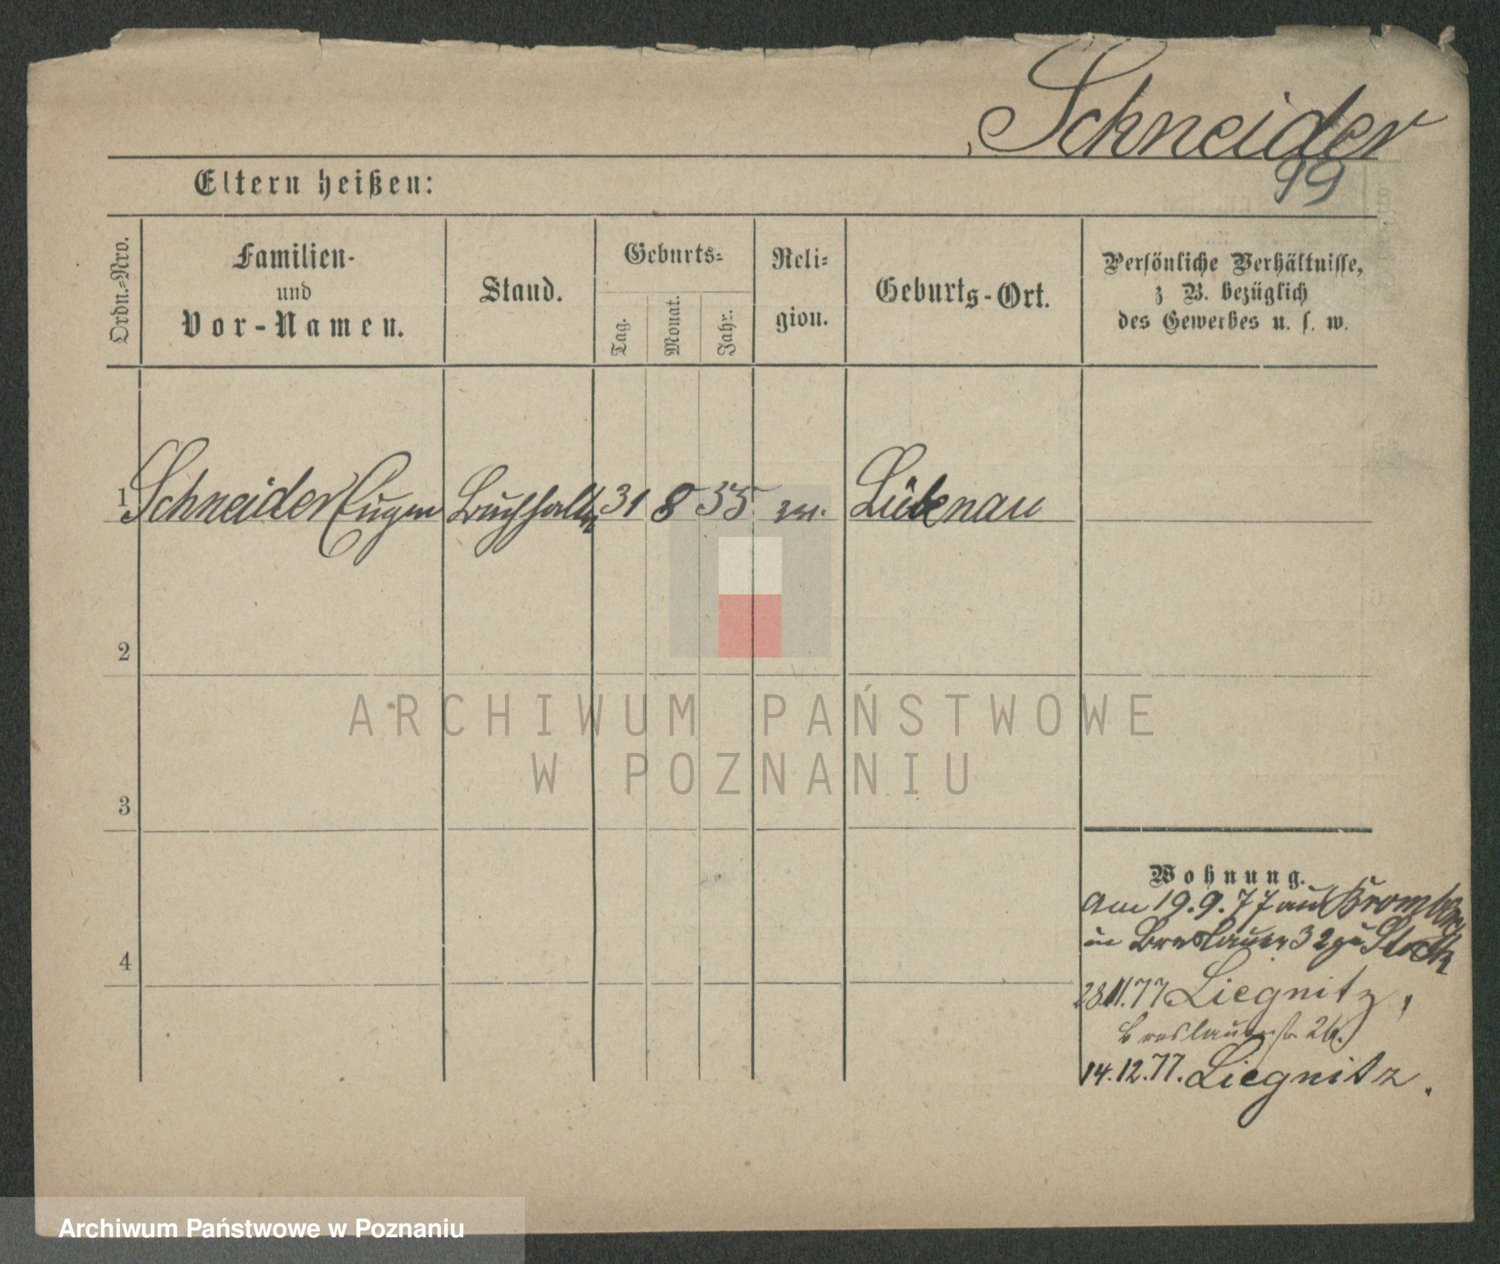 Schneider
99
Eltern heißen:
Ordn.-Nro.
Familien-
und
Vor-Namen.
Stand.
Geburts-
Tag.
Monat.
Jahr.
Reli-
gion.
Geburts-Ort.
Persönliche Verhältnisse,
z B. bezüglich
des Gewerbes u. s. w.
1 Schneider Eugen Buchhalter 31 8 55 ev. Lübenau
2
3
4
Wohnung.
Am 19.9.77 aus Bromberg
in Breslauer 32
28.11.77 Liegnitz,
Breslauerstr
14.12.77. Liegnitz.
ARCHIWUM PAŃSTWOWE
W POZNANIU
Archiwum Państwowe w Poznaniu